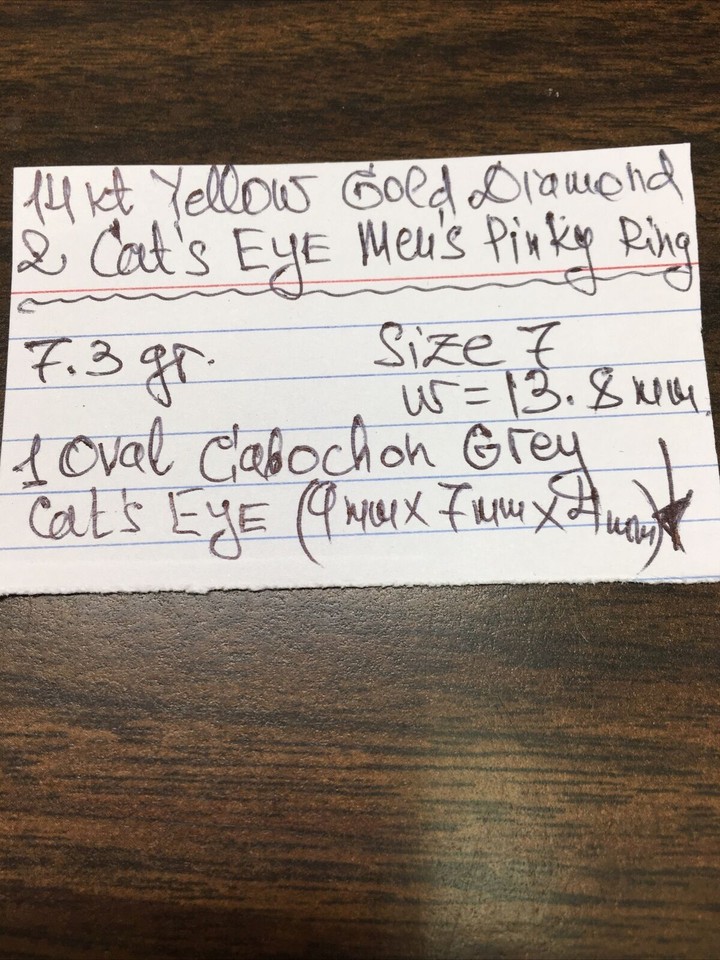 14 kt Yellow Gold Diamond
& Cat's EYE Men's Pinky Ring
7.3 gr. Size 7
W = 13.8 mm.
1 Oval Cabochon Grey
Cat's EYE (9mm x 7mm x 4mm) ↓